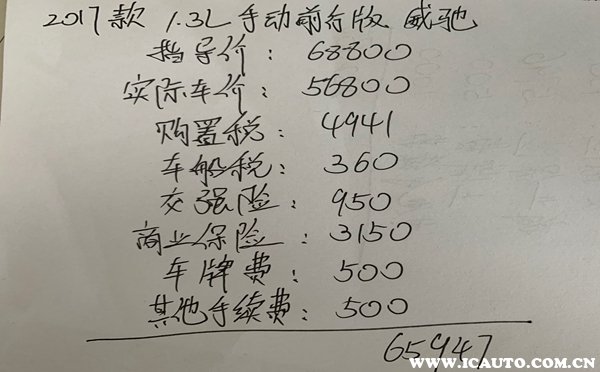 2017款 1.3L 手动前行版 威驰
指导价: 68800
实际车价: 56800
购置税: 4941
车船税: 360
交强险: 950
商业保险: 3150
车牌费: 500
其他手续费: 500
65947
WWW.ICAUTO.COM.CN